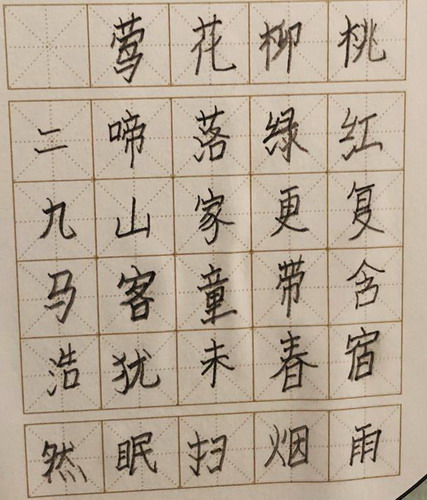 桃红复含宿雨
柳绿更带春烟
花落家童未扫
莺啼山客犹眠
二九马浩然